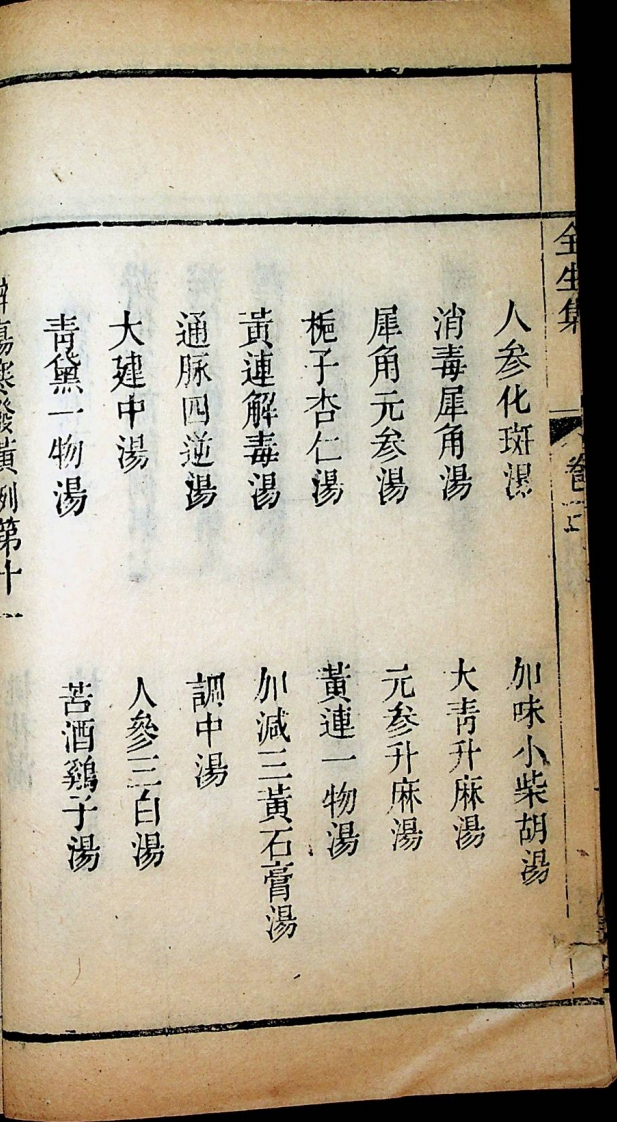 全生集
卷二
人參化斑湯 加味小柴胡湯
消毒犀角湯 大青升麻湯
犀角元參湯 元參升麻湯
梔子杏仁湯 黃連一物湯
黃連解毒湯 加減三黃石膏湯
通脉四逆湯 調中湯
大建中湯 人參三白湯
青黛一物湯 苦酒鷄子湯
傷寒發黃例第十